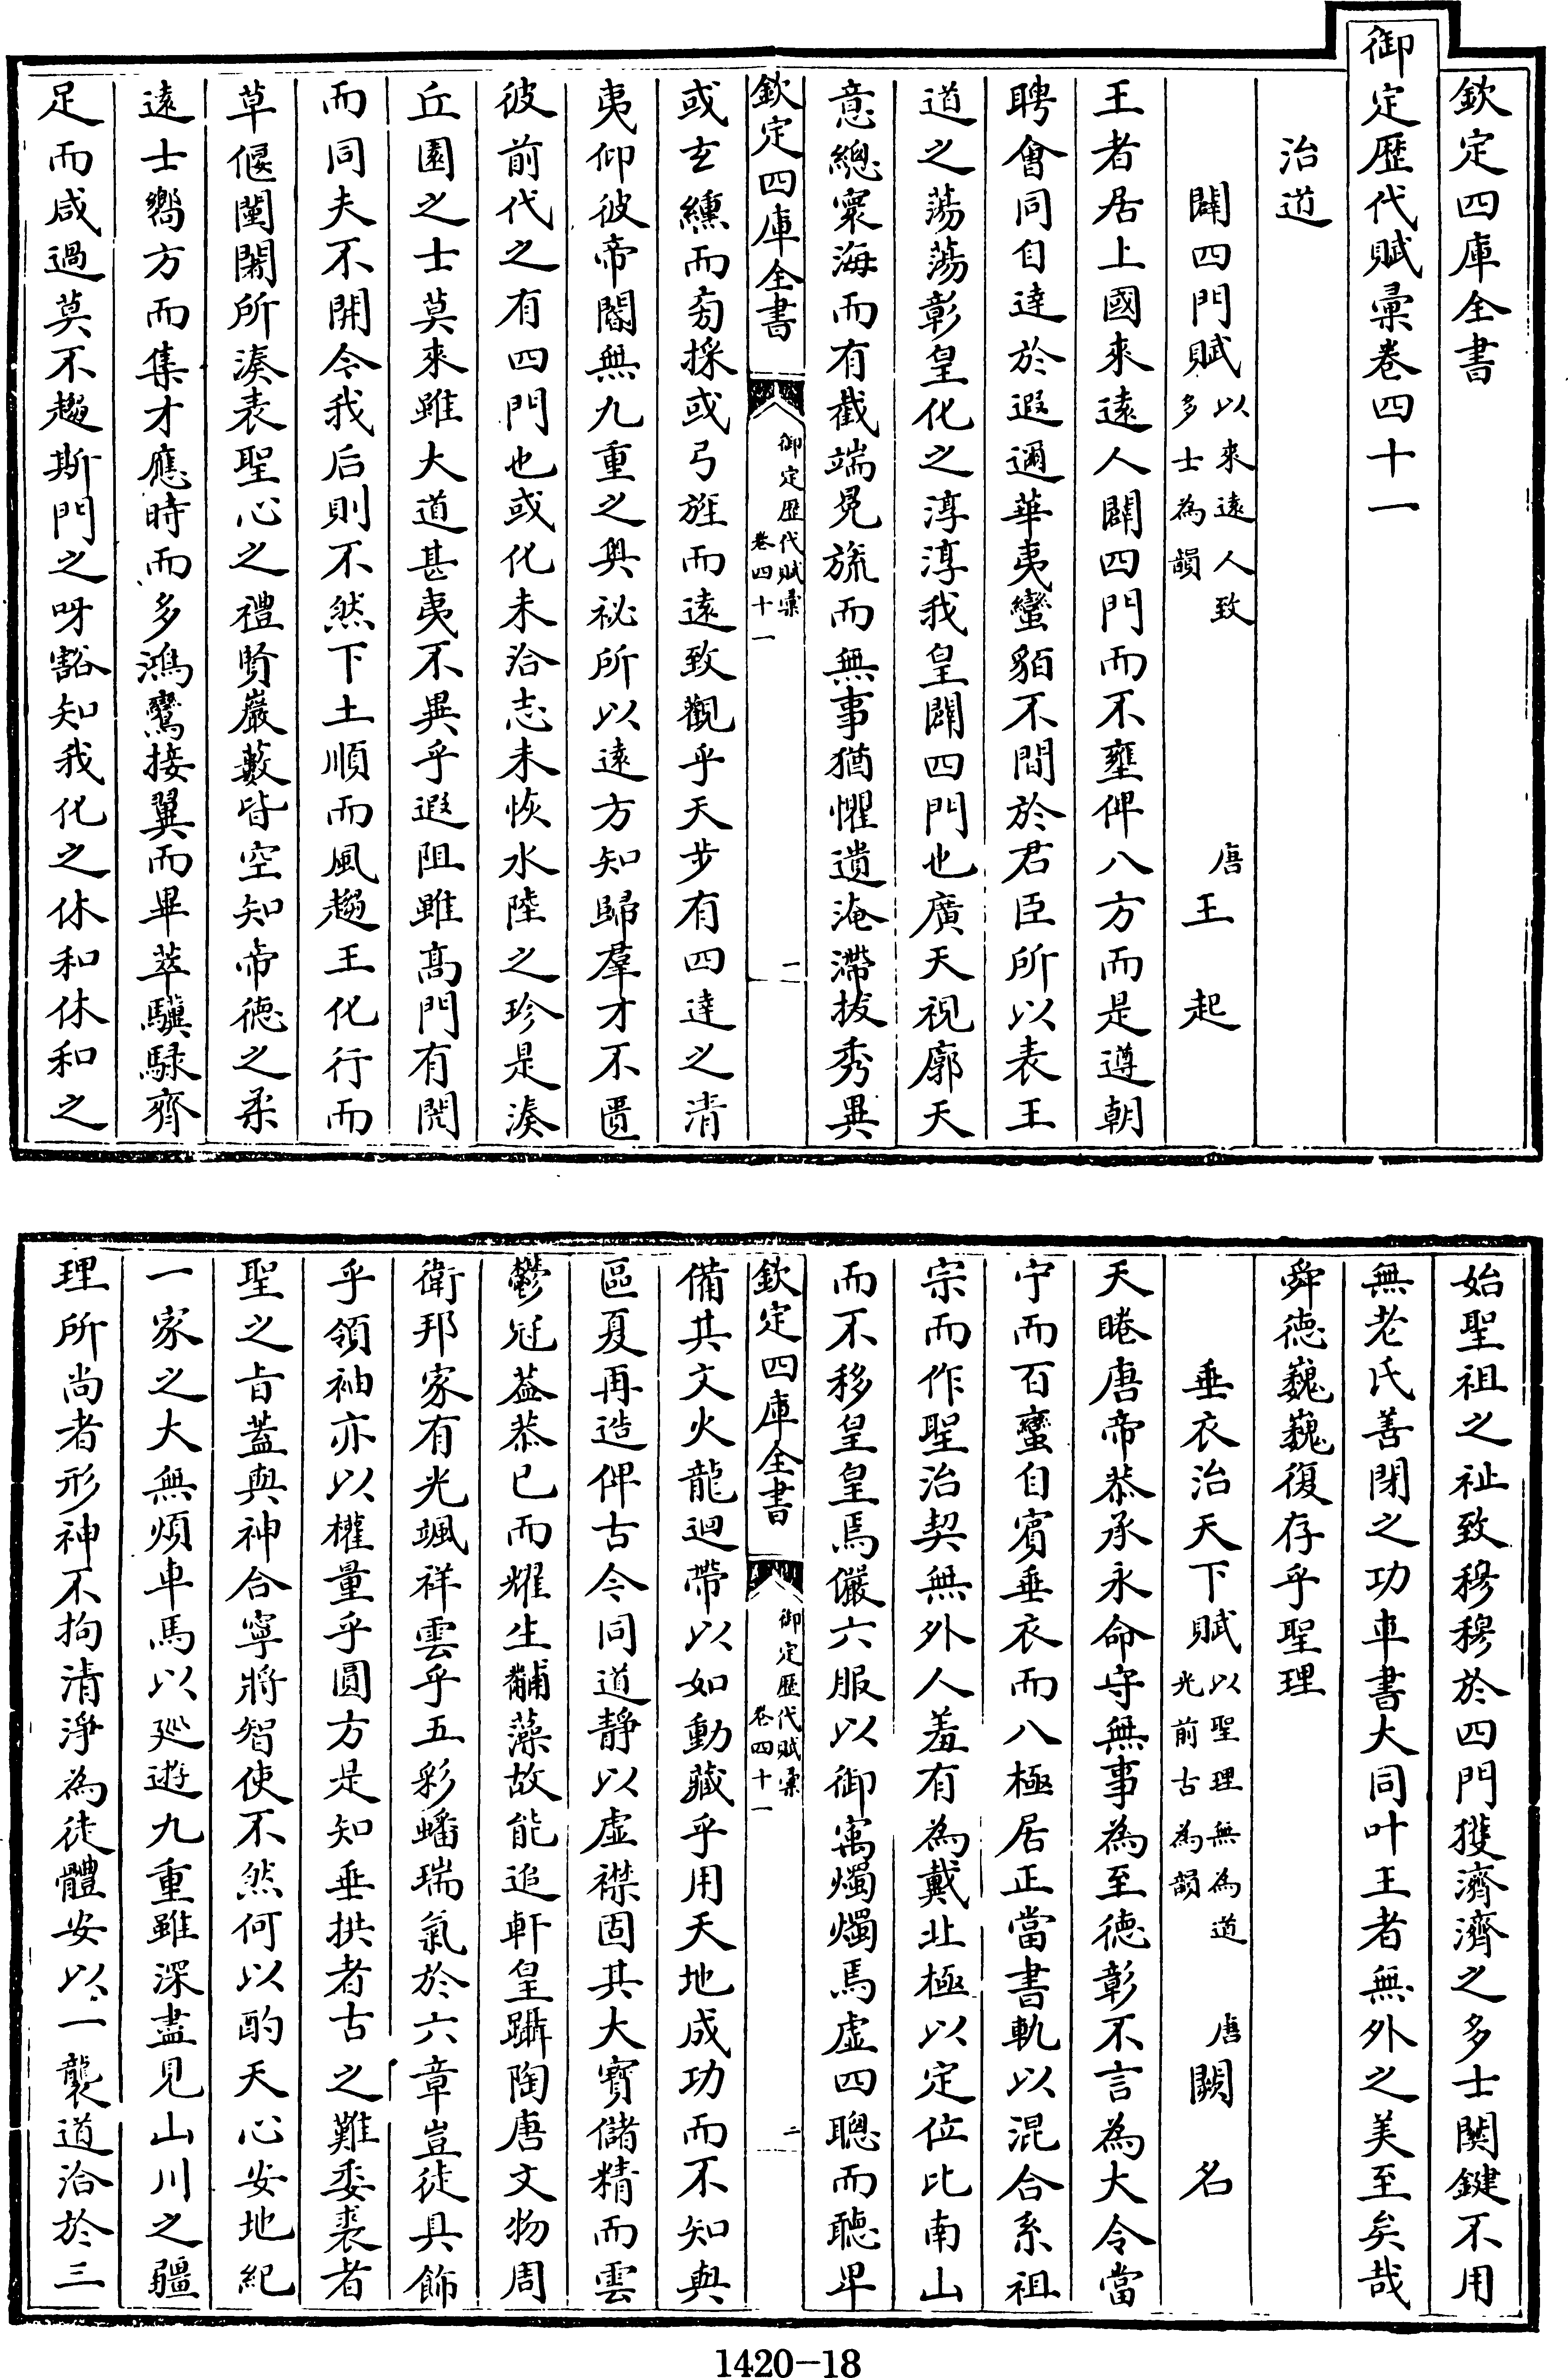 欽定四庫全書
御定歷代賦彙卷四十一
治道
闢四門賦以來遠人致多士為韻 唐王起
王者居上國來遠人闢四門而不壅俾八方而是遵朝
聘會同自達於遐邇華夷蠻貊不間於君臣所以表王
道之蕩蕩彰皇化之淳淳我皇闢四門也廣天視廓天
意總寰海而有截端冕旒而無事猶懼遺淹滯拔秀異
欽定四庫全書 御定歷代賦彙 卷四十一 一
或玄纁而旁採或弓旌而遠致觀乎天步有四達之清
夷仰彼帝閽無九重之奧祕所以遠方知歸羣才不匱
彼前代之有四門也或化未洽志未恢水陸之珍是湊
丘園之士莫來雖大道甚夷不異乎遐阻雖高門有閌
而同夫不開今我后則不然下土順而風趨王化行而
草偃闉闍所湊表聖心之禮賢巖藪皆空知帝德之柔
遠士嚮方而集才應時而多鴻鸞接翼而畢萃驥騄齊
足而咸過莫不趨斯門之呀豁知我化之休和休和之
始聖祖之祉致穆穆於四門獲濟濟之多士関鍵不用
無老氏善閉之功車書大同叶王者無外之美至矣哉
舜德巍巍復存乎聖理
垂衣治天下賦以聖理無為道光前古為韻 唐闕名
天睠唐帝恭承永命守無事為至德彰不言為大令當
宁而百蠻自賓垂衣而八極居正當書軌以混合系祖
宗而作聖治契無外人羞有為戴北極以定位比南山
而不移皇皇焉儼六服以御㝢燭燭焉虛四聰而聽卑
欽定四庫全書 御定歷代賦彙 卷四十一 二
備其文火龍迴帶以如動藏乎用天地成功而不知與
區夏再造俾古今同道靜以虛襟固其大寶儲精而雲
鬱冠葢恭已而耀生黼藻故能追軒皇躡陶唐文物周
衛邦家有光颯祥雲乎五彩蟠瑞氣於六章豈徒具飾
乎領袖亦以權量乎圓方是知垂拱者古之難委裘者
聖之旨蓋與神合寧將智使不然何以酌天心安地紀
一家之大無煩車馬以巡遊九重雖深盡見山川之疆
理所尚者形神不拘清淨為徒體安以一襲道洽於三
1420-18